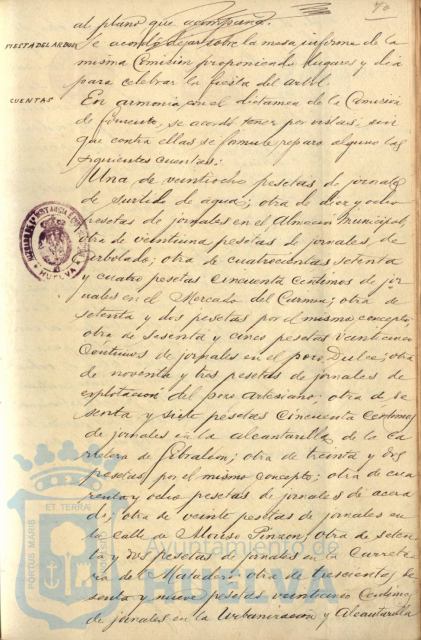 al plano que acompaña.
70
FIESTA DEL ARBOL
Se acordó dejar sobre la mesa informe de la
misma Comisión proponiendo lugares y dia
para celebrar la fiesta del arbol.
CUENTAS
En armonia con el dictamen de la Comisión
de fomento, se acordó tener por vistas, sin
que contra ellas se formule reparo alguno las
siguientes cuentas:
Una de veintiocho pesetas de jornales
de surtido de agua; otra de diez y ocho
pesetas de jornales en el Almacén Municipal;
otra de veintiuna pesetas de jornales, de
arbolado; otra de cuatrocientas setenta
y cuatro pesetas cincuenta centimos de jor
nales en el Mercado del Carmen; otra de
setenta y dos pesetas por el mismo concepto;
otra de sesenta y cinco pesetas veinticinco
céntimos de jornales en el pozo Dulce; otra
de noventa y tres pesetas de jornales de
explotacion del pozo artesiano; otra de se
senta y siete pesetas cincuenta centimos
de jornales en la alcantarilla de la Ca
rretera de Gibraleon; otra de treinta y dos
pesetas por el mismo concepto; otra de cua
renta y ocho pesetas de jornales de acera
do; otra de veinte pesetas de jornales en
la calle de Alonso Pinzon; otra de seten
ta y dos pesetas de jornales en la Carrete
ra del Matadero; otra de trescientas se
senta y nueve pesetas veinticinco centimos
de jornales en la Urbanización y Alcantarilla
HUELVA
PORTUS MARIS
ET TERRÆ
Ayuntamiento de
HUELVA